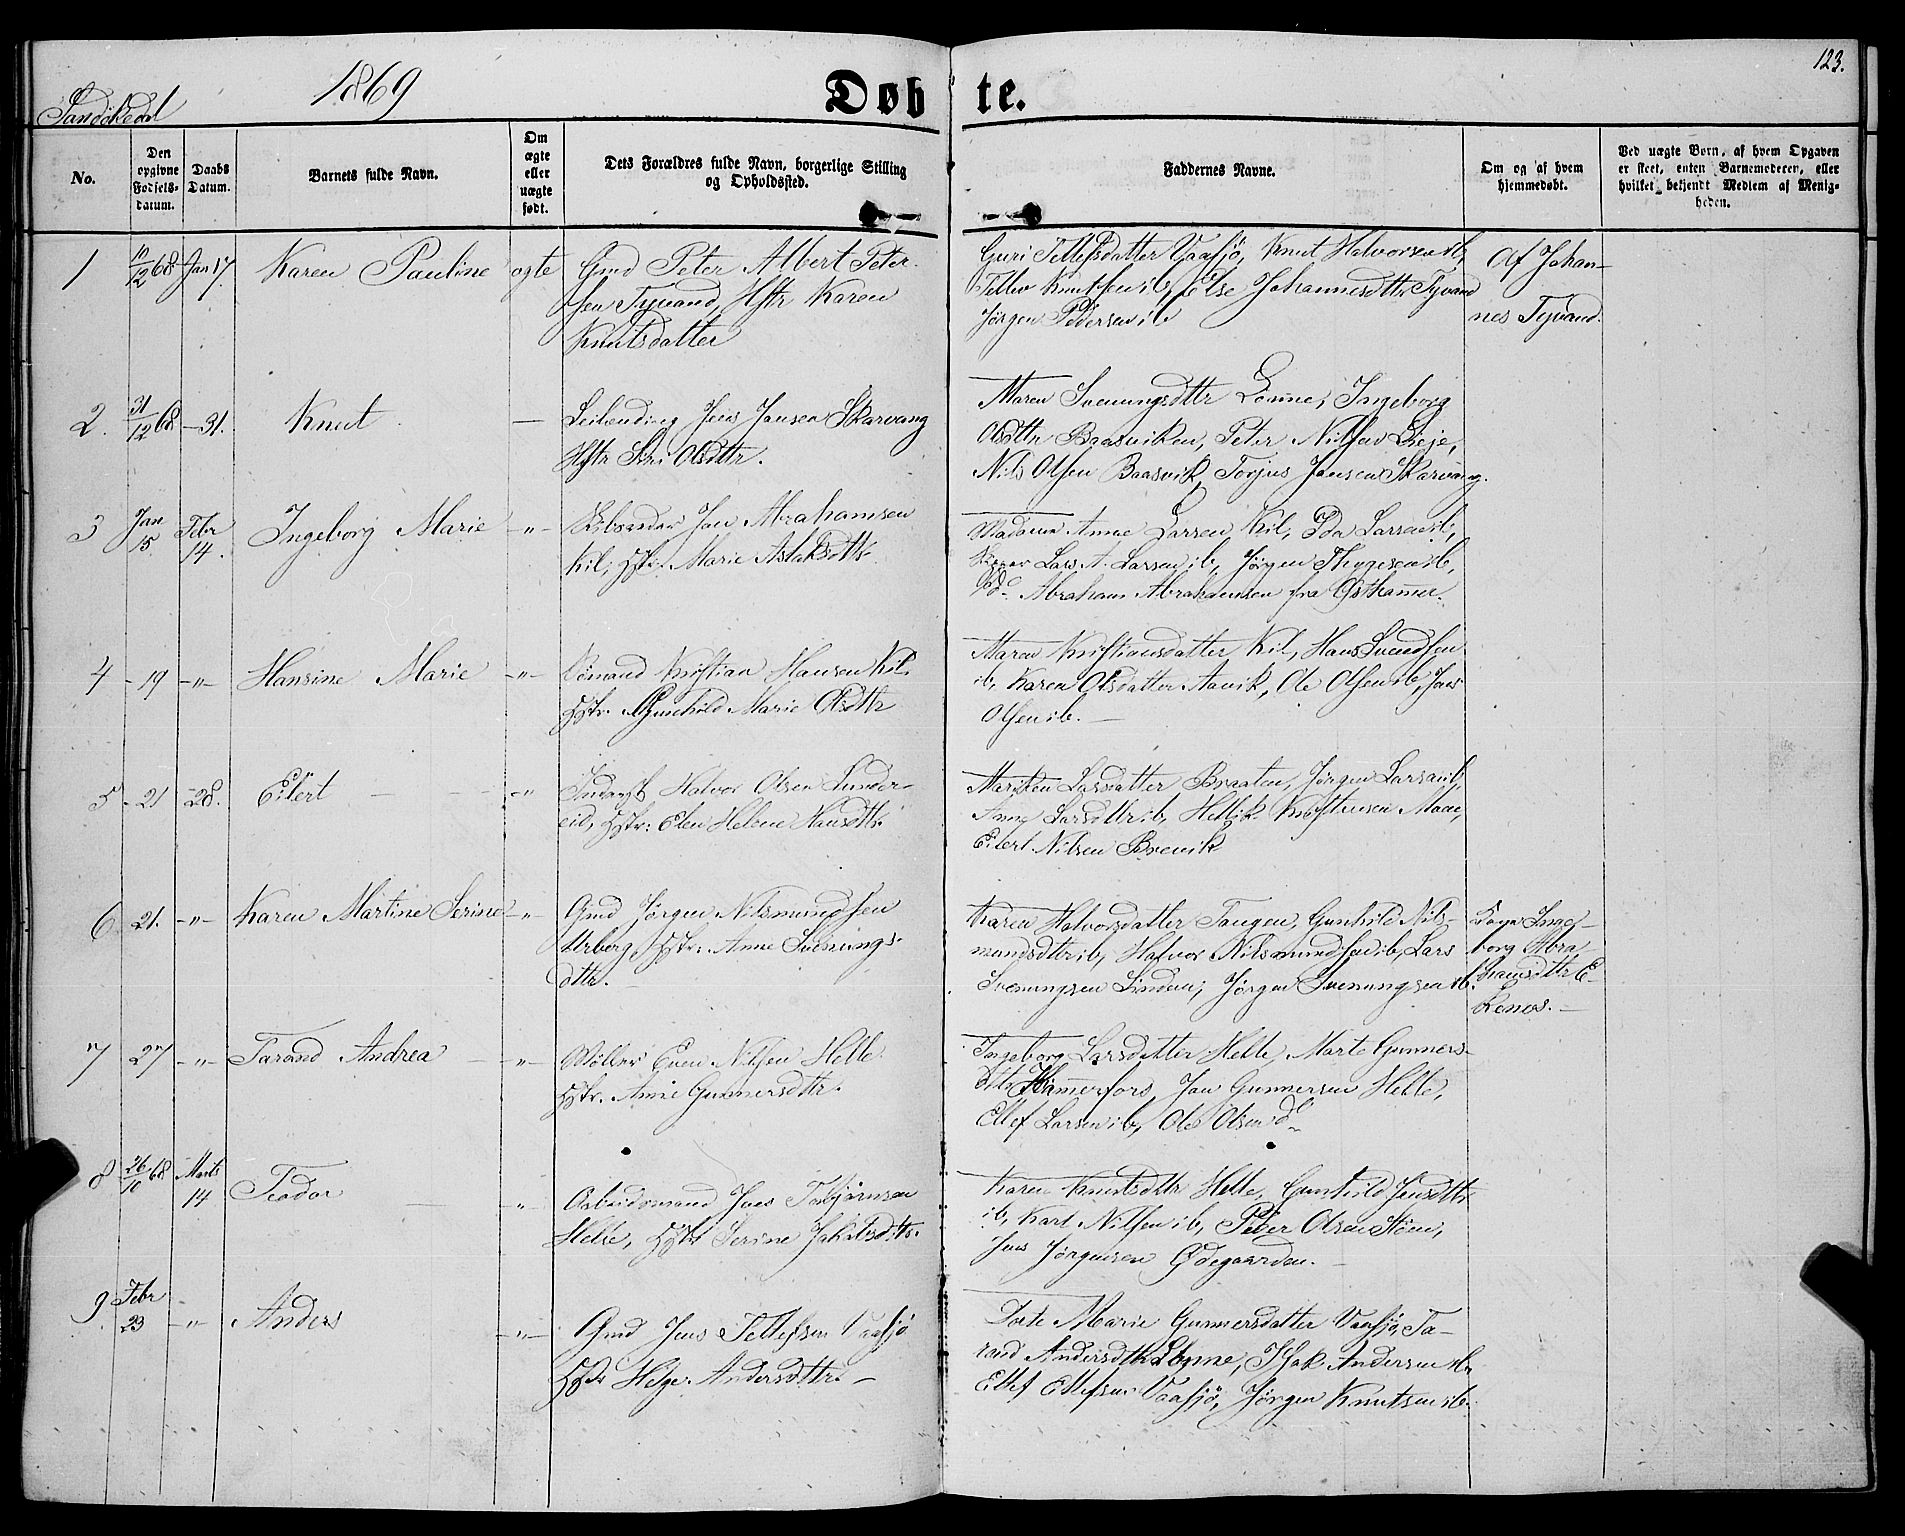 Sandøkedal
1869
Døbte.
123.
No.
Den opgivne Fødsels-datum.
Daabs Datum.
Barnets fulde Navn.
Om ægte eller uægte født.
Dets Forældres fulde Navn, borgerlige Stilling og Opholdssted.
Faddernes Navne.
Om og af hvem hjemmedøbt.
Ved uægte Børn, af hvem Opgaven er skeet, enten Barnemoderen, eller hvilket bekjendt Medlem af Menigheden.
1 10/12 68 Jan 17. Karen Pauline ægte Gmd Peter Albert Peter-
sen Tyvand, Hstr Karen
Knutsdatter
Guri Tellefsdatter Vaasjø, Knut Halvorsen ib,
Tellev Knutsen ib, Else Johannesdttr Tyvand
Jørgen Pedersen ib
Af Johan-
nes Tyvand.
2. 31/12 68 -31. Knut. — Leilending Jens Jansen Skarvang
Hstr Siri Olsdttr.
Maren Svenungsdttr Lønne, Ingeborg
Olsdttr Baasviken, Peter Nilsen Leje,
Nils Olsen Baasvik, Torjus Jansen Skarvang.
3 Jan 15 Febr 14. Ingeborg Marie -"- Jan Abrahamsen
Kil, Hstr. Marie Aslaksdttr
Madam Anne Larsen Kil, Ida Larsen ib,
Lars A. Larsen ib, Jørgen Thygesen ib,
Abraham Abrahamsen fra Østhammer.
4 -19 -"- Hansine Marie -"- Sømand Kristian Hansen Kil
Hstr. Gunhild Marie Olsdttr
Maren Kristiansdatter Kil, Hans Svendsen
ib, Karen Olsdatter Aavik, Ole Olsen ib, Jens
Olsen ib. —
5 -21 -28. Eilert -"- Halvor Olsen Lunder-
eid, Hstr: Elen Helene Hansdttr
Mariken Larsdatter Braaten, Jørgen Larsen ib,
Anne Larsdttr ib, Hellik Kristensen Moen,
Eilert Nilsen Brevik
6 21. -"- Karen Martine Serine -"- Gmd Jørgen Nilsmundsen
Urberg, Hstr. Anne Svenungs-
dttr.
Karen Halvorsdatter Tangen, Gunhild Nils-
mundsdttr ib, Halvor Nilsmundsen ib, Lars
Svenungsen Linden, Jørgen Svenungsen ib.
Inge-
borg Abra-
hamsdttr E-
kenes. —
7 27 -"- Tarand Andrea -"- Møller Even Nilsen Helle
Hstr. Anne Gunnersdttr.
Ingeborg Larsdatter Helle, Marte Gunners-
dttr Hammerfors, Jan Gunnersen Helle,
Ellef Larsen ib, Ole Olsen do
8 26/10 68 Marts 14 Teodor " Arbeidsmand Jens Torbjørnsen
Helle, Hstr Serine Jakobsdttr.
Karen Knutsdttr Helle, Gunhild Jensdttr
ib, Karl Nilsen ib, Peter Olsen Støen,
Jens Jørgensen Ødegaarden. —
9 Febr 23 -"- Anders -"- Gmd Jens Tellefsen Vaasjø
Hstr Helge Andersdttr. —
Dorte Marie Gunnersdatter Vaasjø, Ta-
rand Andersdttr Lønne, Isak Andersen ib,
Ellef Ellefsen Vaasjø, Jørgen Knutsen ib.